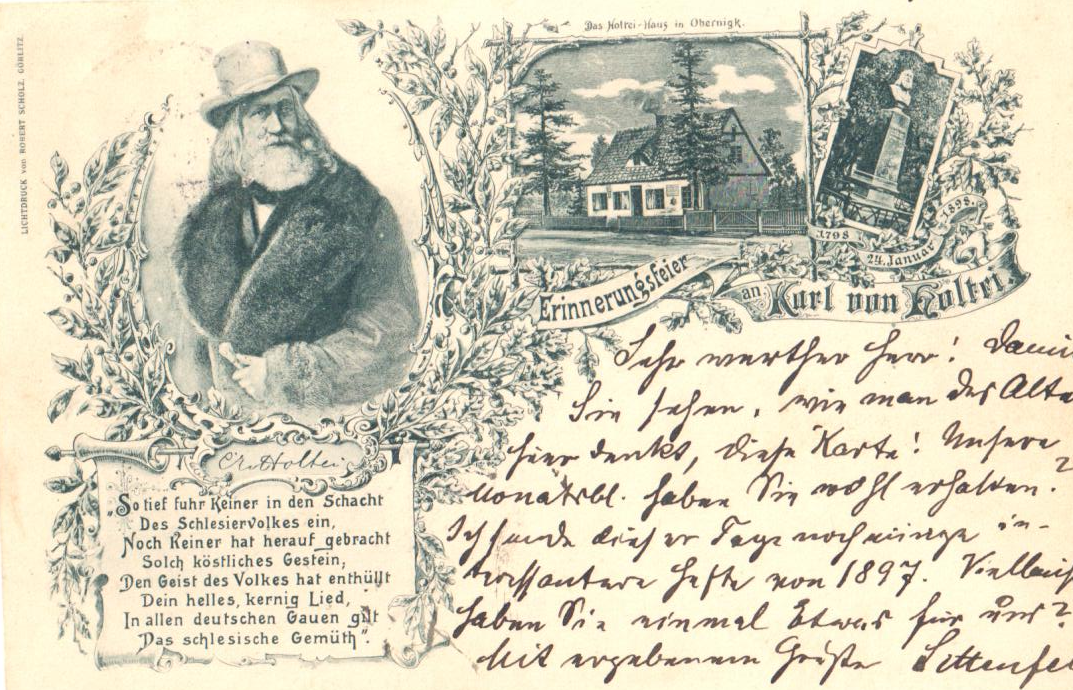 LICHTDRUCK von ROBERT SCHOLZ, GÖRLITZ.
Das Holtei-Haus in Obernigk.
1798 24. Januar 1898.
Erinnerungsfeier an Karl von Holtei.
C. v. Holtei
„So tief fuhr Keiner in den Schacht
Des Schlesiervolkes ein,
Noch Keiner hat herauf gebracht
Solch köstliches Gestein;
Den Geist des Volkes hat enthüllt
Dein helles, kernig Lied,
In allen deutschen Gauen gilt
Das schlesische Gemüth“.
Sehr werther Herr! Dami
Sie sehen, wie man des Alte
hier denkt, diese Karte! Unsere
Monatsbl. haben Sie wohl erhalten?
Ich sende dieser Tage noch einige in-
teressantere Hefte von 1897. Vielleich
haben Sie einmal Etwas für uns?
Mit ergebenem Gruße